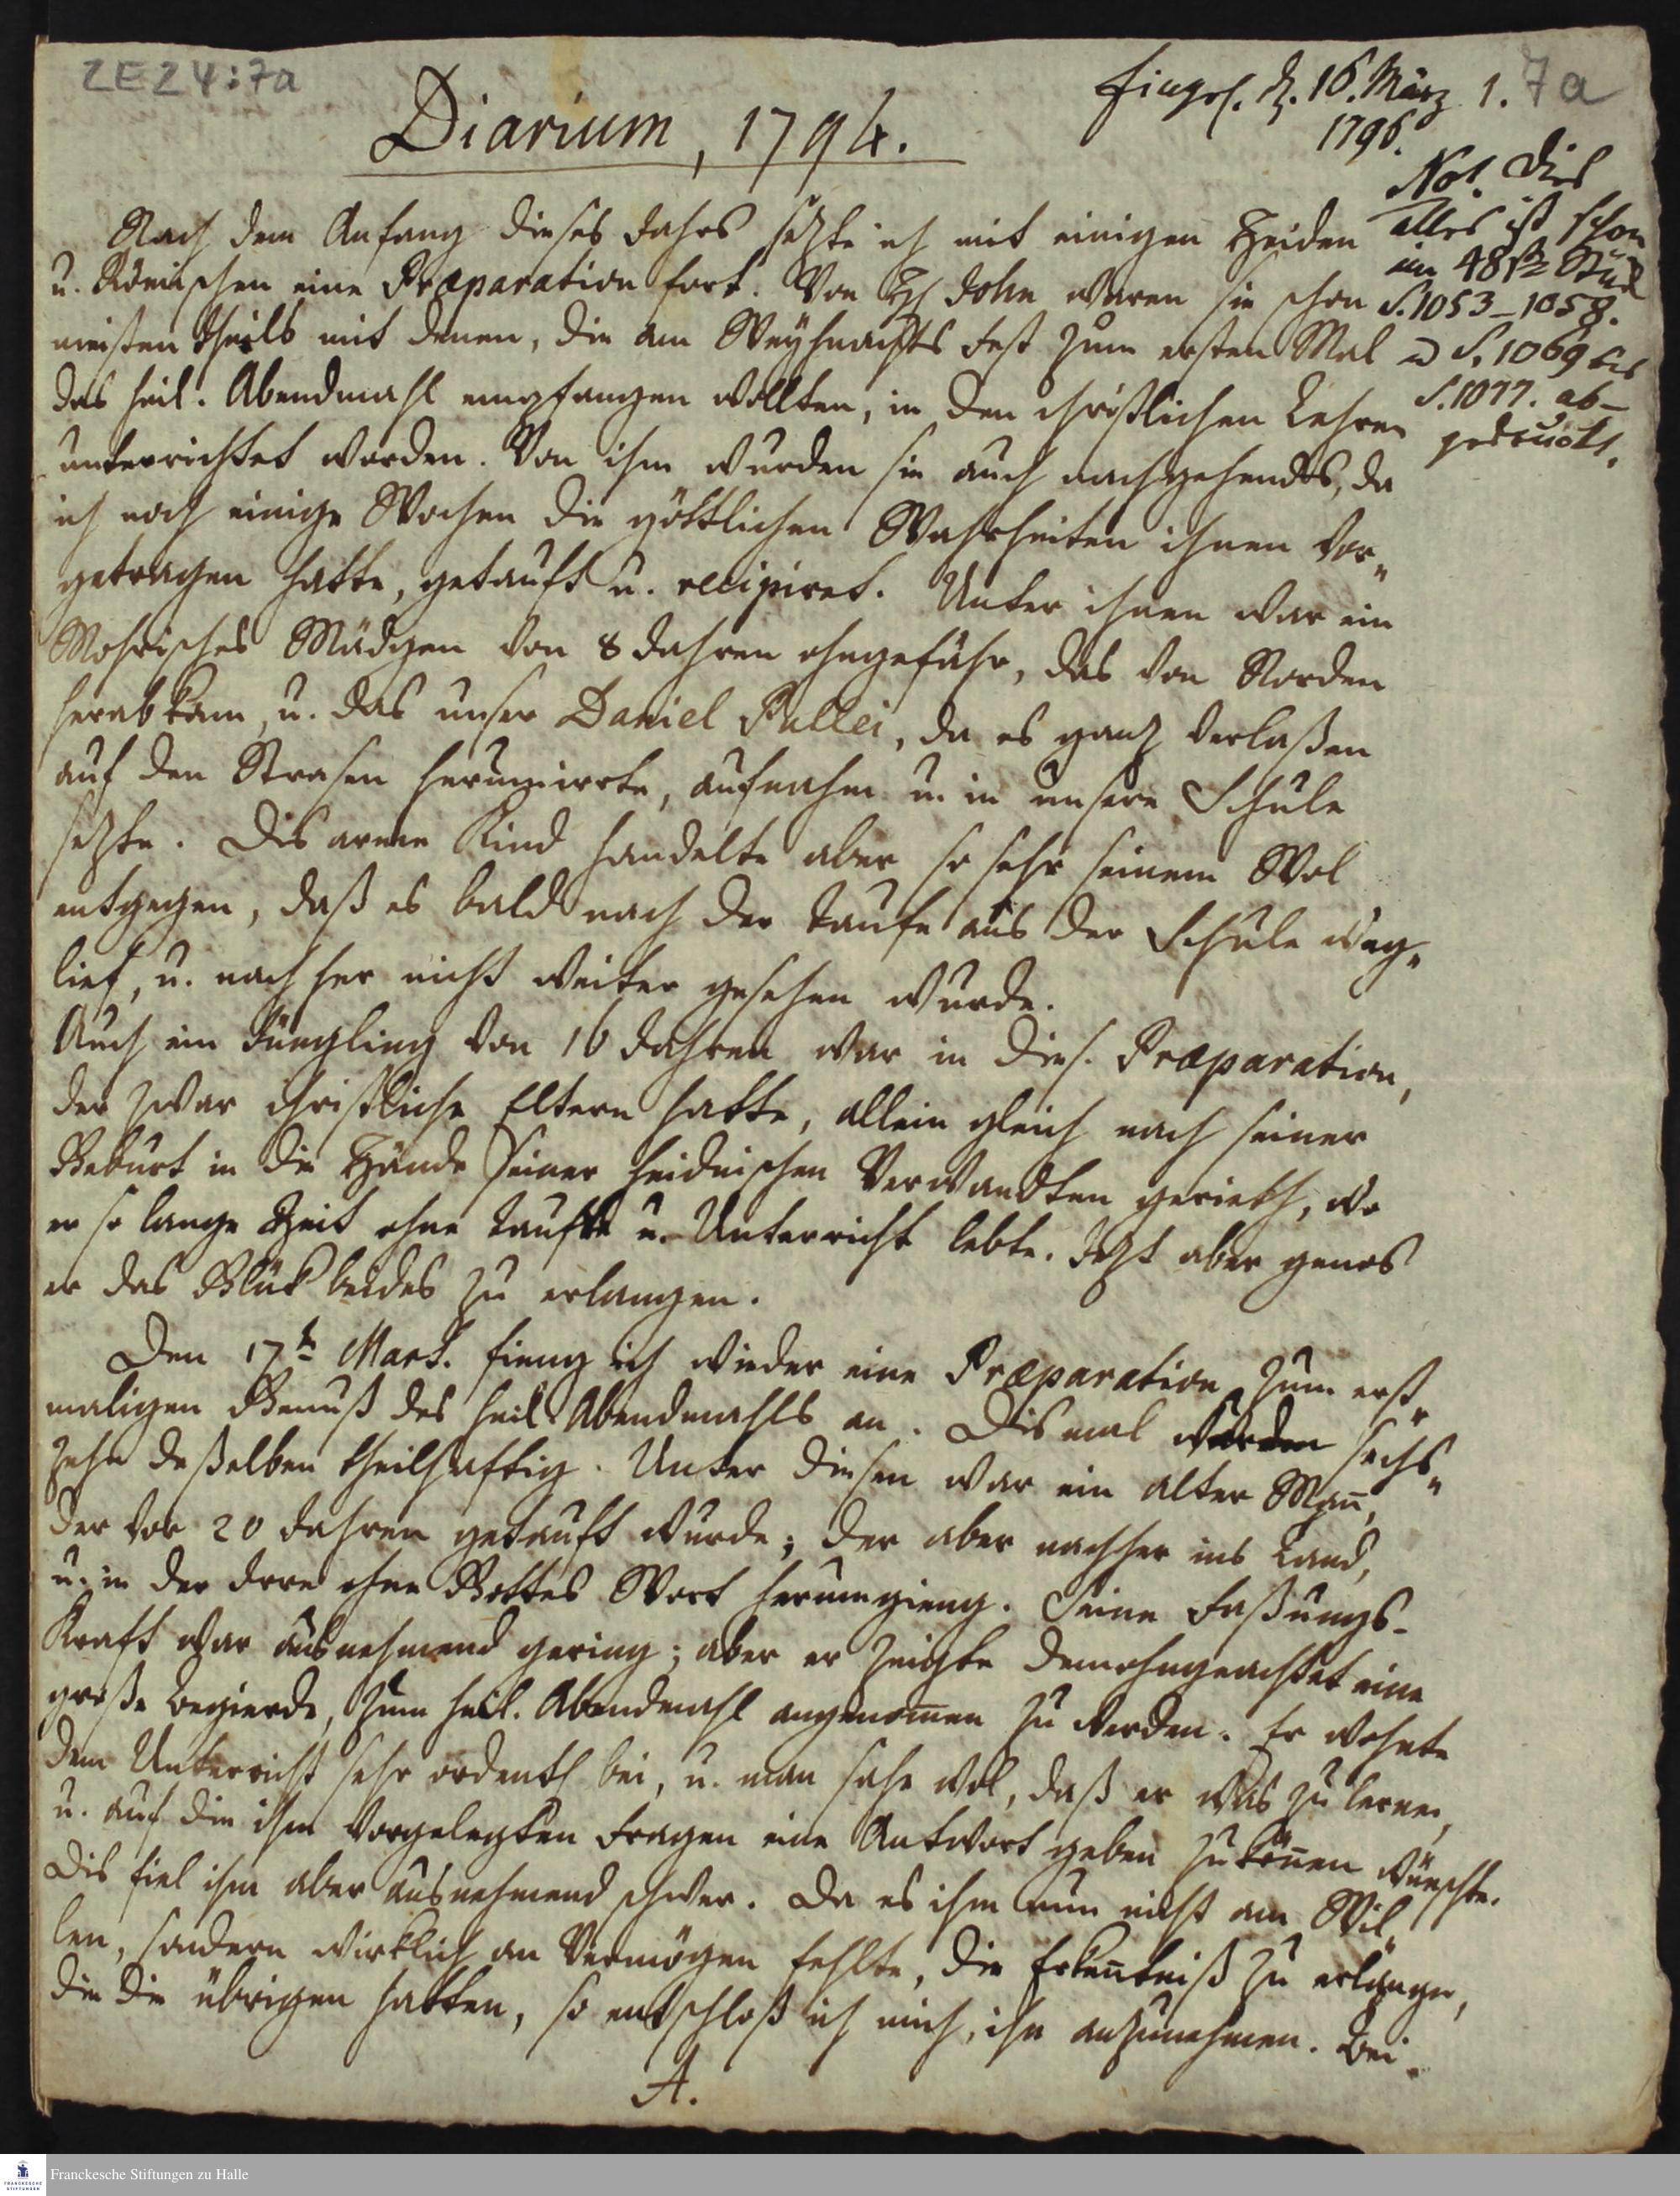 ZE24:7a
Einges. d. 16. März 1. 7a
1796.
Diarium, 1794.
Not. Dies
alles ist schon
im 48st. Stück
S. 1053–1058.
u S. 1069 bis
S. 1077. ab-
gedruckt.
Nach dem Anfang dieses Jahrs sezte ich mit einigen Heiden
u. Römischen eine Præparation fort. Von H John waren sie schon
meisten theils mit denen, die am Weyhnachts Fest zum ersten Mal
das heil. Abendmahl empfangen wollten, in den christlichen Lehren
unterrichtet worden. Von ihm wurden sie auch nachgehends, da
ich noch einige Wochen die göttlichen Wahrheiten ihnen vor„
getragen hatte, getauft u. recipiret. Unter ihnen war ein
Mohrisches Mädgen von 8 Jahren ohngefähr, das von Norden
herabkam, u. das unser Daniel Pullei, da es ganz verlaßen
auf den Strasen herumirrte, aufnahm u. in unsere Schule
sezte. Dis arme Kind handelte aber so sehr seinem Wol
entgegen, daß es bald nach der Taufe aus der Schule weg„
lief, u. nachher nicht weiter gesehen wurde.
Auch ein Jüngling von 16 Jahren war in dies. Præparation,
der zwar christliche Eltern hatte, allein gleich nach seiner
Geburt in die Hände seiner heidnischen Verwandten gerieth, wo
er so lange Zeit ohne Taufe u. Unterricht lebte. Jezt aber genos
er das Glük beides zu erlangen.
Den 17t Mart. fieng ich wieder eine Præparation zum erst„
maligen Genuß des heil. Abendmahls an. Dis mal wurden sechs„
zehn deßelben theilhaftig. Unter diesen war ein alter Mañ,
der vor 20 Jahren getauft wurde; der aber nachher ins Land,
u. in der Irre ohne Gottes Wort herumgieng. Seine Faßungs-
Kraft war ausnehmend gering; aber er zeigte demohngeachtet eine
große Begierde, zum heil. Abendmahl angenom̃en zu werden. Er wohnte
dem Unterricht sehr ordentl bei, u. man sahe wol, daß er was zu lernen,
u. auf die ihm vorgelegten Fragen eine Antwort geben zu köñen wünschte.
Dis fiel ihm aber ausnehmend schwer. Da es ihm nun nicht am Wil„
len, sondern wirklich an Vermögen fehlte, die Erkeñtniß zu erlangen,
die die übrigen hatten, so entschloß ich mich, ihn anzunehmen. Bei
A.
Franckesche Stiftungen zu Halle
FRANCKESCHE
STIFTUNGEN